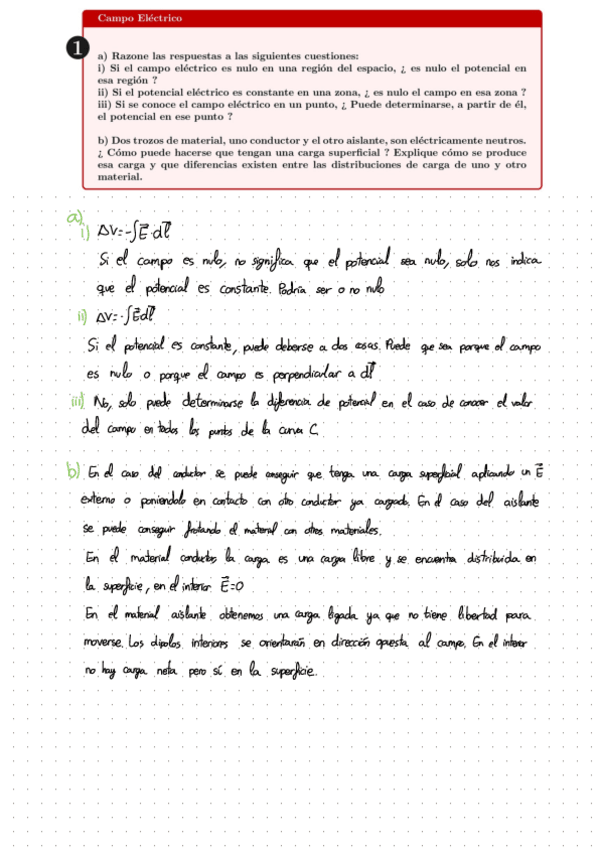 Campo Eléctrico
1
a) Razone las respuestas a las siguientes cuestiones:
i) Si el campo eléctrico es nulo en una región del espacio, ¿ es nulo el potencial en
esa región ?
ii) Si el potencial eléctrico es constante en una zona, ¿ es nulo el campo en esa zona ?
iii) Si se conoce el campo eléctrico en un punto, ¿ Puede determinarse, a partir de él,
el potencial en ese punto ?
b) Dos trozos de material, uno conductor y el otro aislante, son eléctricamente neutros.
¿ Cómo puede hacerse que tengan una carga superficial ? Explique cómo se produce
esa carga y que diferencias existen entre las distribuciones de carga de uno y otro
material.
a)
i) ΔV=-∫E⃗·dl⃗
Si el campo es nulo, no significa que el potencial sea nulo, solo nos indica
que el potencial es constante. Podría ser o no nulo
ii) ΔV=-∫E⃗dl⃗
Si el potencial es constante, puede deberse a dos cosas. Puede que sea porque el campo
es nulo o porque el campo es perpendicular a dl⃗
iii) No, solo puede determinarse la diferencia de potencial en el caso de conocer el valor
del campo en todos los puntos de la curva C.
b) En el caso del conductor se puede conseguir que tenga una carga superficial aplicando un E⃗
externo o poniendolo en contacto con otro conductor ya cargado. En el caso del aislante
se puede conseguir frotando el material con otros materiales.
En el material conductor, la carga es una carga libre y se encuentra distribuida en
la superficie, en el interior E⃗=0
En el material aislante obtenemos una carga ligada ya que no tiene libertad para
moverse. Los dipolos interiores se orientarán en dirección opuesta al campo. En el interior
no hay carga neta pero sí en la superficie.